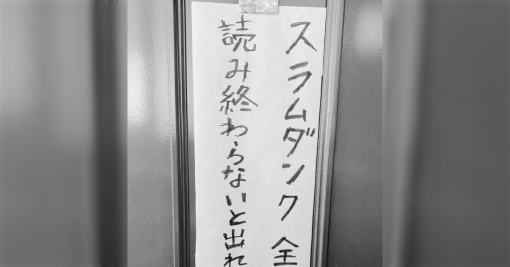 スラムダンク全
読み終わらないと出れ